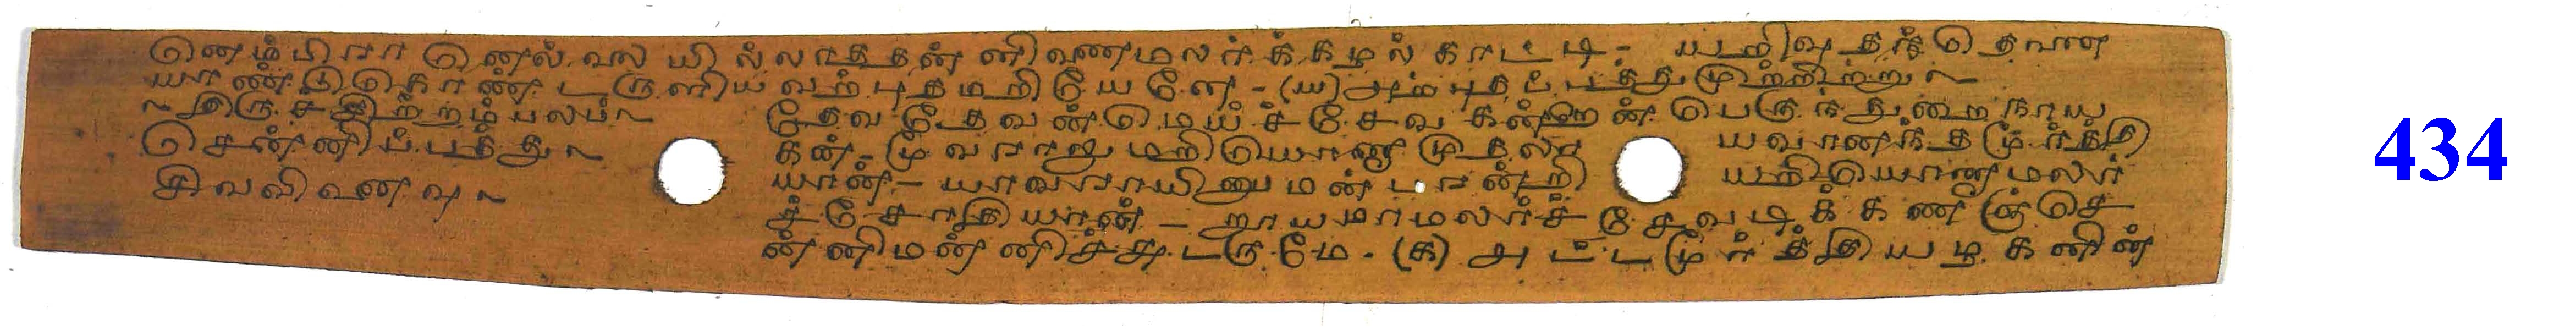 னெம்பிரா னெல்லையில்லாததன் னிணைமலர்க்கழல்காட்டி - யறிவுதந்தெனை
யாண்டுகொண்டருளியவற்புதமறியேனே - (ய) அற்புதப்பத்துமுற்றிற்று ~
~ திருச்சிற்றம்பலம் ~ தேவதேவன்மெய்ச்சேவகன்றென்பெருந்துறைநாய
சென்னிப்பத்து ~ கன் - மூவராலுமறியொணாமுதலா யவானந்தமூர்த்தி
சிவவிளைவு ~ யான் - யாவராயினுமன்பரன்றி யறியொணாமலர்
ச்சோதியான் - றூயமாமலர்ச்சேவடிக்கணஞ்செ
ன்னிமன்னிச்சுடருமே - (க) அட்டமூர்த்தியழகனின்
434